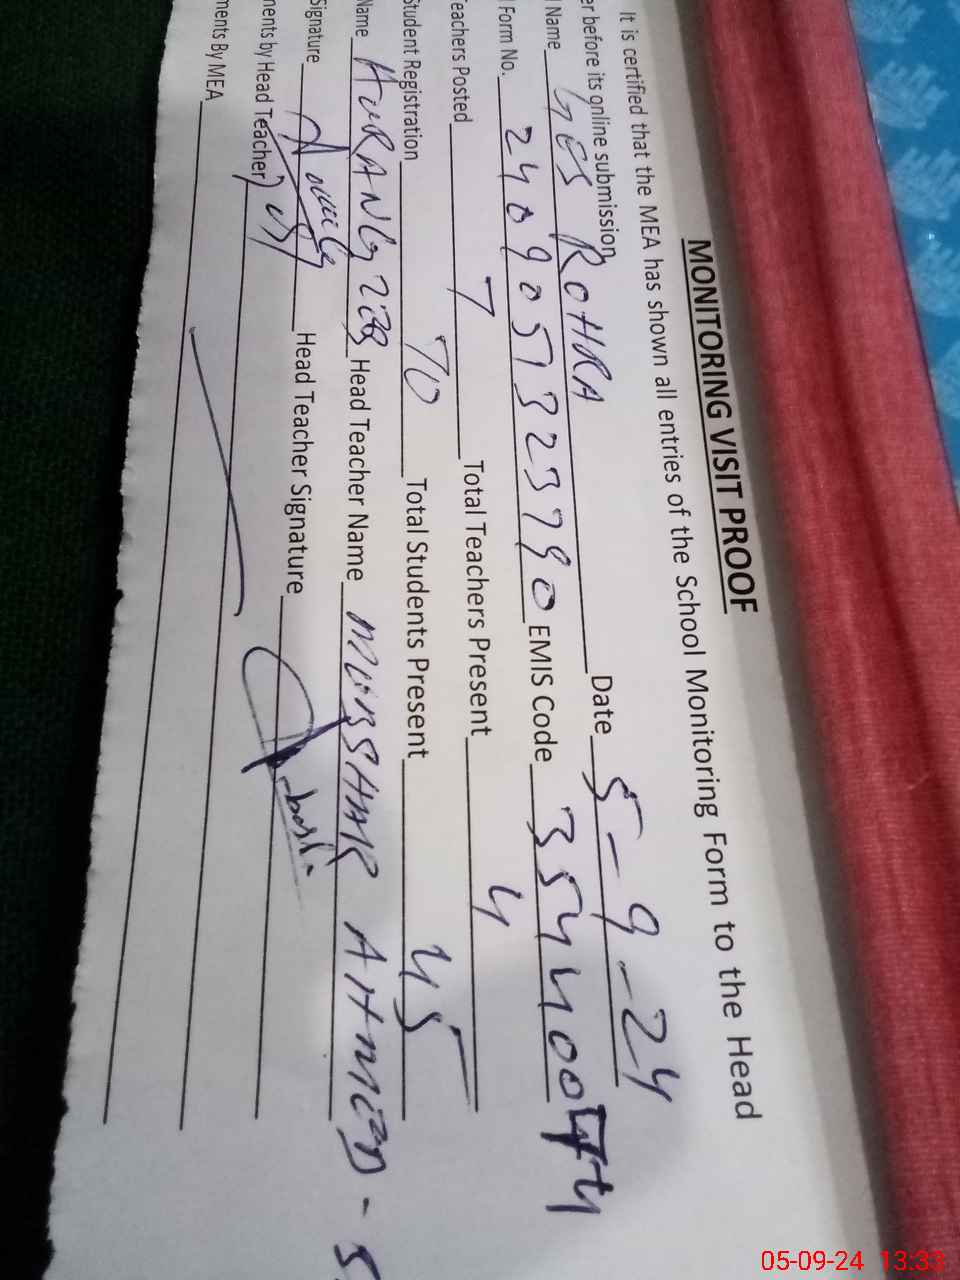 MONITORING VISIT PROOF
It is certified that the MEA has shown all entries of the School Monitoring Form to the Head
er before its online submission
Name GES ROHRA Date 5-9-24
Form No. EMIS Code
eachers Posted 7 Total Teachers Present 4
Student Registration 70 Total Students Present 45
Name AURANGZEB Head Teacher Name MUBSHAR AHMED -
Signature Head Teacher Signature
ments by Head Teacher
ments By MEA
05-09-24 13:33